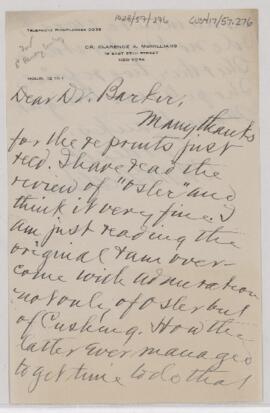 TELEPHONE RHINELANDER 0036
1028/57/276
CUS/17/57.276
DR. CLARENCE A. McWILLIAMS
NEW YORK
HOUR, 12 TO 1
Dear Dr. Barker,
Many thanks
for the reprints just
recd. I have read the
review of "Osler" and
think it very fine. I
am just reading the
original & am over-
come with admiration
not only of Osler but
of Cushing. How the
latter ever managed
to get time to do that